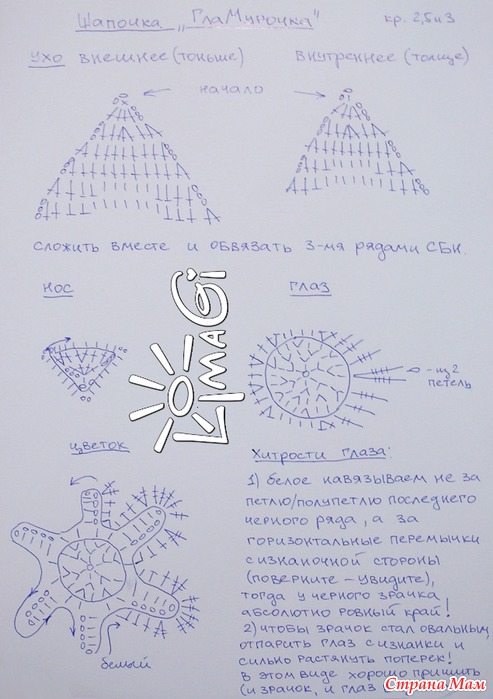 Шапочка „ГлаМурочка"
кр. 2,5 и 3
ухо внешнее (тоньше)
внутреннее (толще)
начало
сложить вместе и обвязать 3-мя рядами СБН.
нос
глаз
LiMaGi
-из 2
петель
цветок
белый
Хитрости глаза:
1) белое навязываем не за
петлю/полупетлю последнего
черного ряда, а за
горизонтальные перемычки
с изнаночной стороны
(поверните – увидите),
тогда у черного зрачка
абсолютно ровный край!
2) чтобы зрачок стал овальным,
отпарить глаз с изнанки и
сильно растянуть поперек!
В этом виде хорошо пришить
(и зрачок, и глаз
Страна Мам